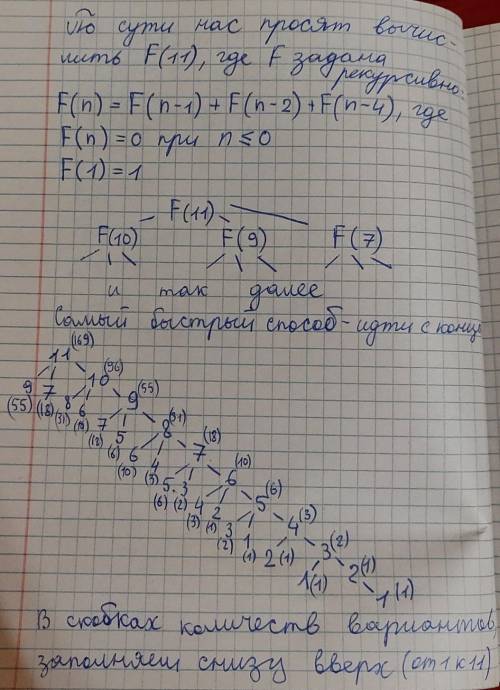 По сути нас просят вычис-
лить F(11), где F задана
рекурсивно:
F(n) = F(n-1) + F(n-2) + F(n-4), где
F(n) = 0 при n ≤ 0
F(1) = 1
F(11)
F(10) F(9) F(7)
и так далее
Самый быстрый способ - идти с конца
11 (169)
9 (55) 7 (18) 10 (96)
8 (31) 6 (10) 9 (55)
7 (18) 5 (6) 8 (31)
6 (10) 4 (3) 7 (18)
5 (6) 3 (2) 6 (10)
4 (3) 2 (1) 5 (6)
3 (2) 1 (1) 4 (3)
2 (1) 3 (2)
1 (1) 2 (1)
1 (1)
В скобках количеств вариантов,
заполняем снизу вверх (от 1 к 11)